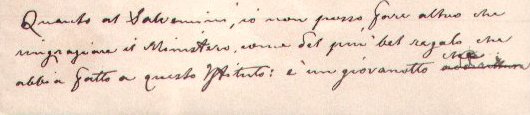 Quanto al Salvemini, io non posso fare altro che
ringraziare il Ministero, come del più bel regalo che
abbia fatto a questo Istituto: è un giovanotto che